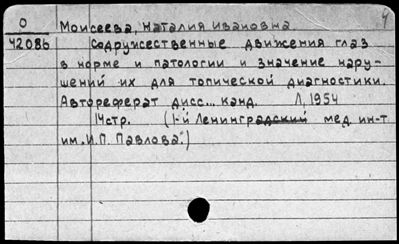 О Моисеева, Наталия Ивановна 4
42086 Содружественные движения глаз
в норме и патологии и значение нару-
шений их для топической диагностики.
Автореферат дисс... канд. Л, 1954
14стр. (1-й Ленинградский мед. ин-т
им. И.П. Павлова.)